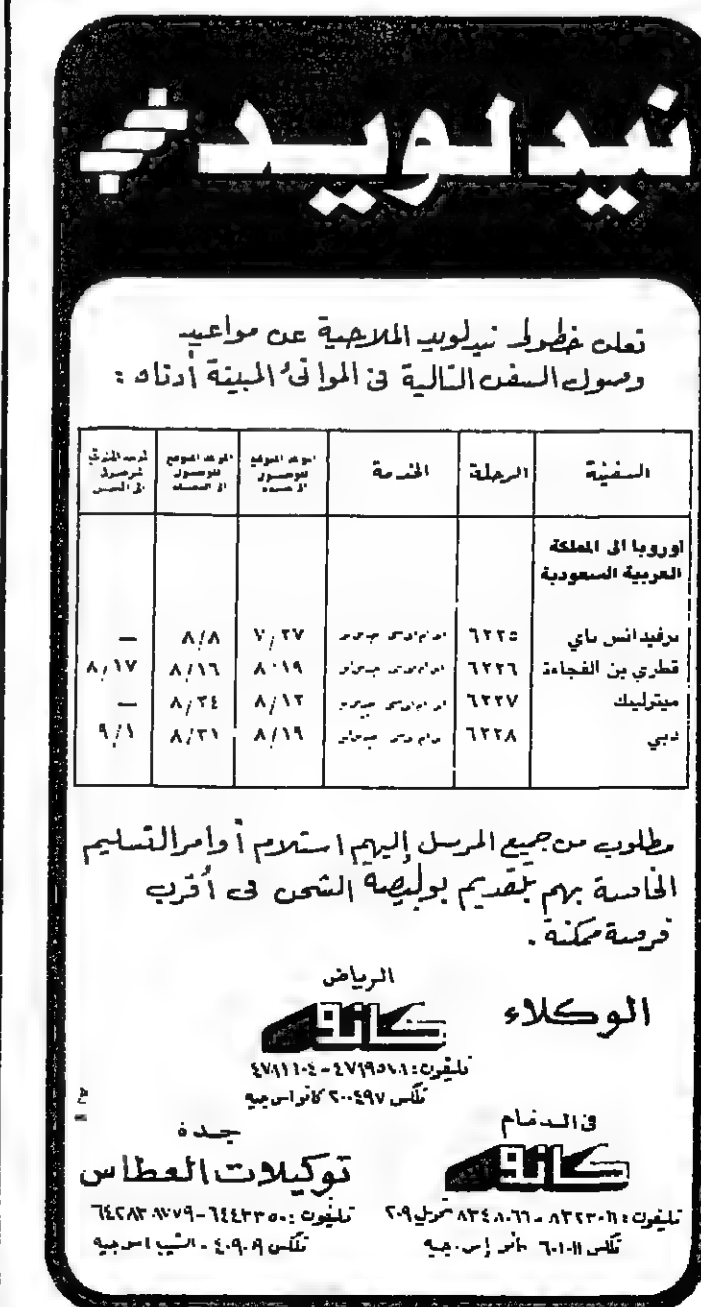 نيدلويد
تعلن خطوط نيدلويد الملاحية عن مواعيد
وصول السفن التالية في الموانئ المبينة أدناه :
السفينة الرحلة الخدمة الموعد المتوقع للوصول الى جدة الموعد المتوقع للوصول الى الدمام الموعد المتوقع للوصول الى الجبيل
اوروبا الى المملكة
العربية السعودية
بروفيدانس باي ٦٢٢٥ ٧/٢٧ ٨/٨ —
قطري بن الفجاءة ٦٢٢٦ ٨/١٦ ٨/١٧
ميترليك ٦٢٢٧ ٨/١٢ ٨/٢٤ —
دبي ٦٢٢٨ ٨/١٩ ٨/٣١ ٩/١
مطلوب من جميع المرسل إليهم استلام أوامر التسليم
الخاصة بهم بتقديم بوليصة الشحن في أقرب
فرصة ممكنة .
الوكلاء
الرياض
كانو
تليفون :
تلكس ٢٠٠٤٩٧ كانو اس جيه
في الدمام
كانو
تليفون : ٨٣٢٣٠١١ - ٨٣٤٨٠٦٦ تحويل ٢٠٩
تلكس ٦٠١٠١١
جدة
توكيلات العطاس
تليفون : ٦٤٤٣٣٥٠ -
تلكس ٤٠٩٠٠٩ -